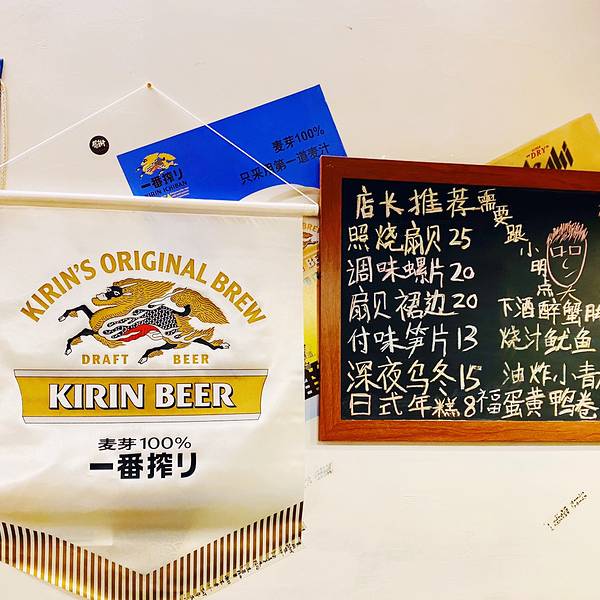 KIRIN'S ORIGINAL BREW
DRAFT BEER
KIRIN BEER
麦芽100%
一番搾り
一番搾り
KIRIN ICHIBAN
麦芽100%
只采用第一道麦汁
"DRY"
店长推荐
需要跟
小明点
照烧扇贝25
调味螺片20
扇贝裙边20
付味笋片13
深夜乌冬15
日式年糕8
下酒醉蟹
烧汁鱿鱼
油炸小青
福蛋黄鸭卷